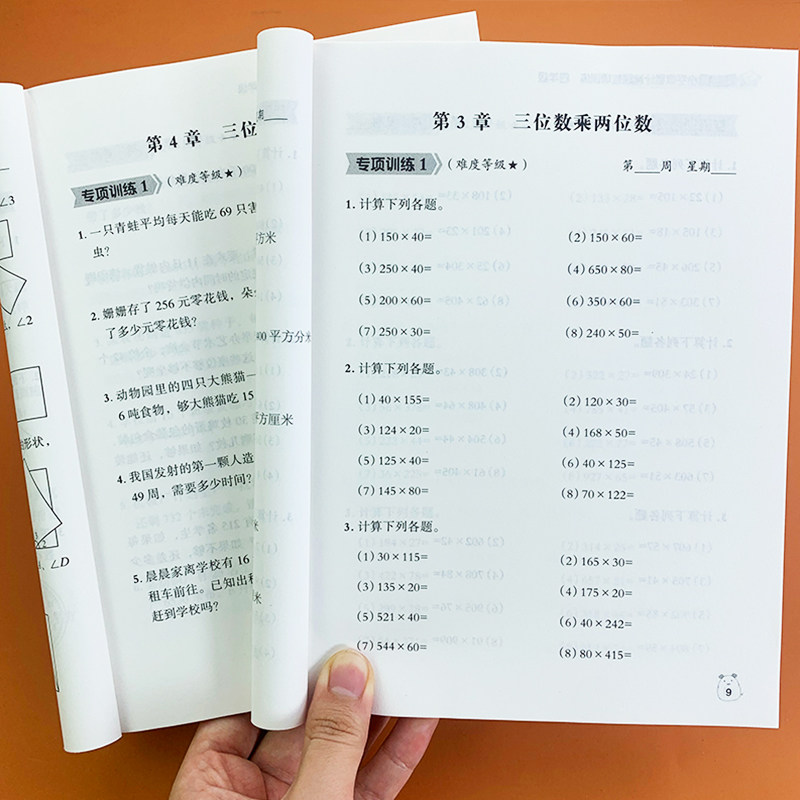 ∠3
∠2
形状,
∠D
第 4 章 三位
专项训练 1 (难度等级★)
1. 一只青蛙平均每天能吃 69 只害
虫?
2. 姗姗存了 256 元零花钱,朵
了多少元零花钱?
3. 动物园里的四只大熊猫一
6 吨食物,够大熊猫吃 15
4. 我国发射的第一颗人造
49 周,需要多少时间?
5. 晨晨家离学校有 16
租车前往。已知出租
赶到学校吗?
期
方米
00 平方分米
方厘米
米
第 3 章 三位数乘两位数
专项训练 1 (难度等级★) 第____周 星期____
1. 计算下列各题。
(1) 150×40= (2) 150×60=
(3) 250×40= (4) 650×80=
(5) 200×60= (6) 350×60=
(7) 250×30= (8) 240×50=
2. 计算下列各题。
(1) 40×155= (2) 120×30=
(3) 124×20= (4) 168×50=
(5) 125×40= (6) 40×125=
(7) 145×80= (8) 70×122=
3. 计算下列各题。
(1) 30×115= (2) 165×30=
(3) 135×20= (4) 175×20=
(5) 521×40= (6) 40×242=
(7) 544×60= (8) 80×415=
9